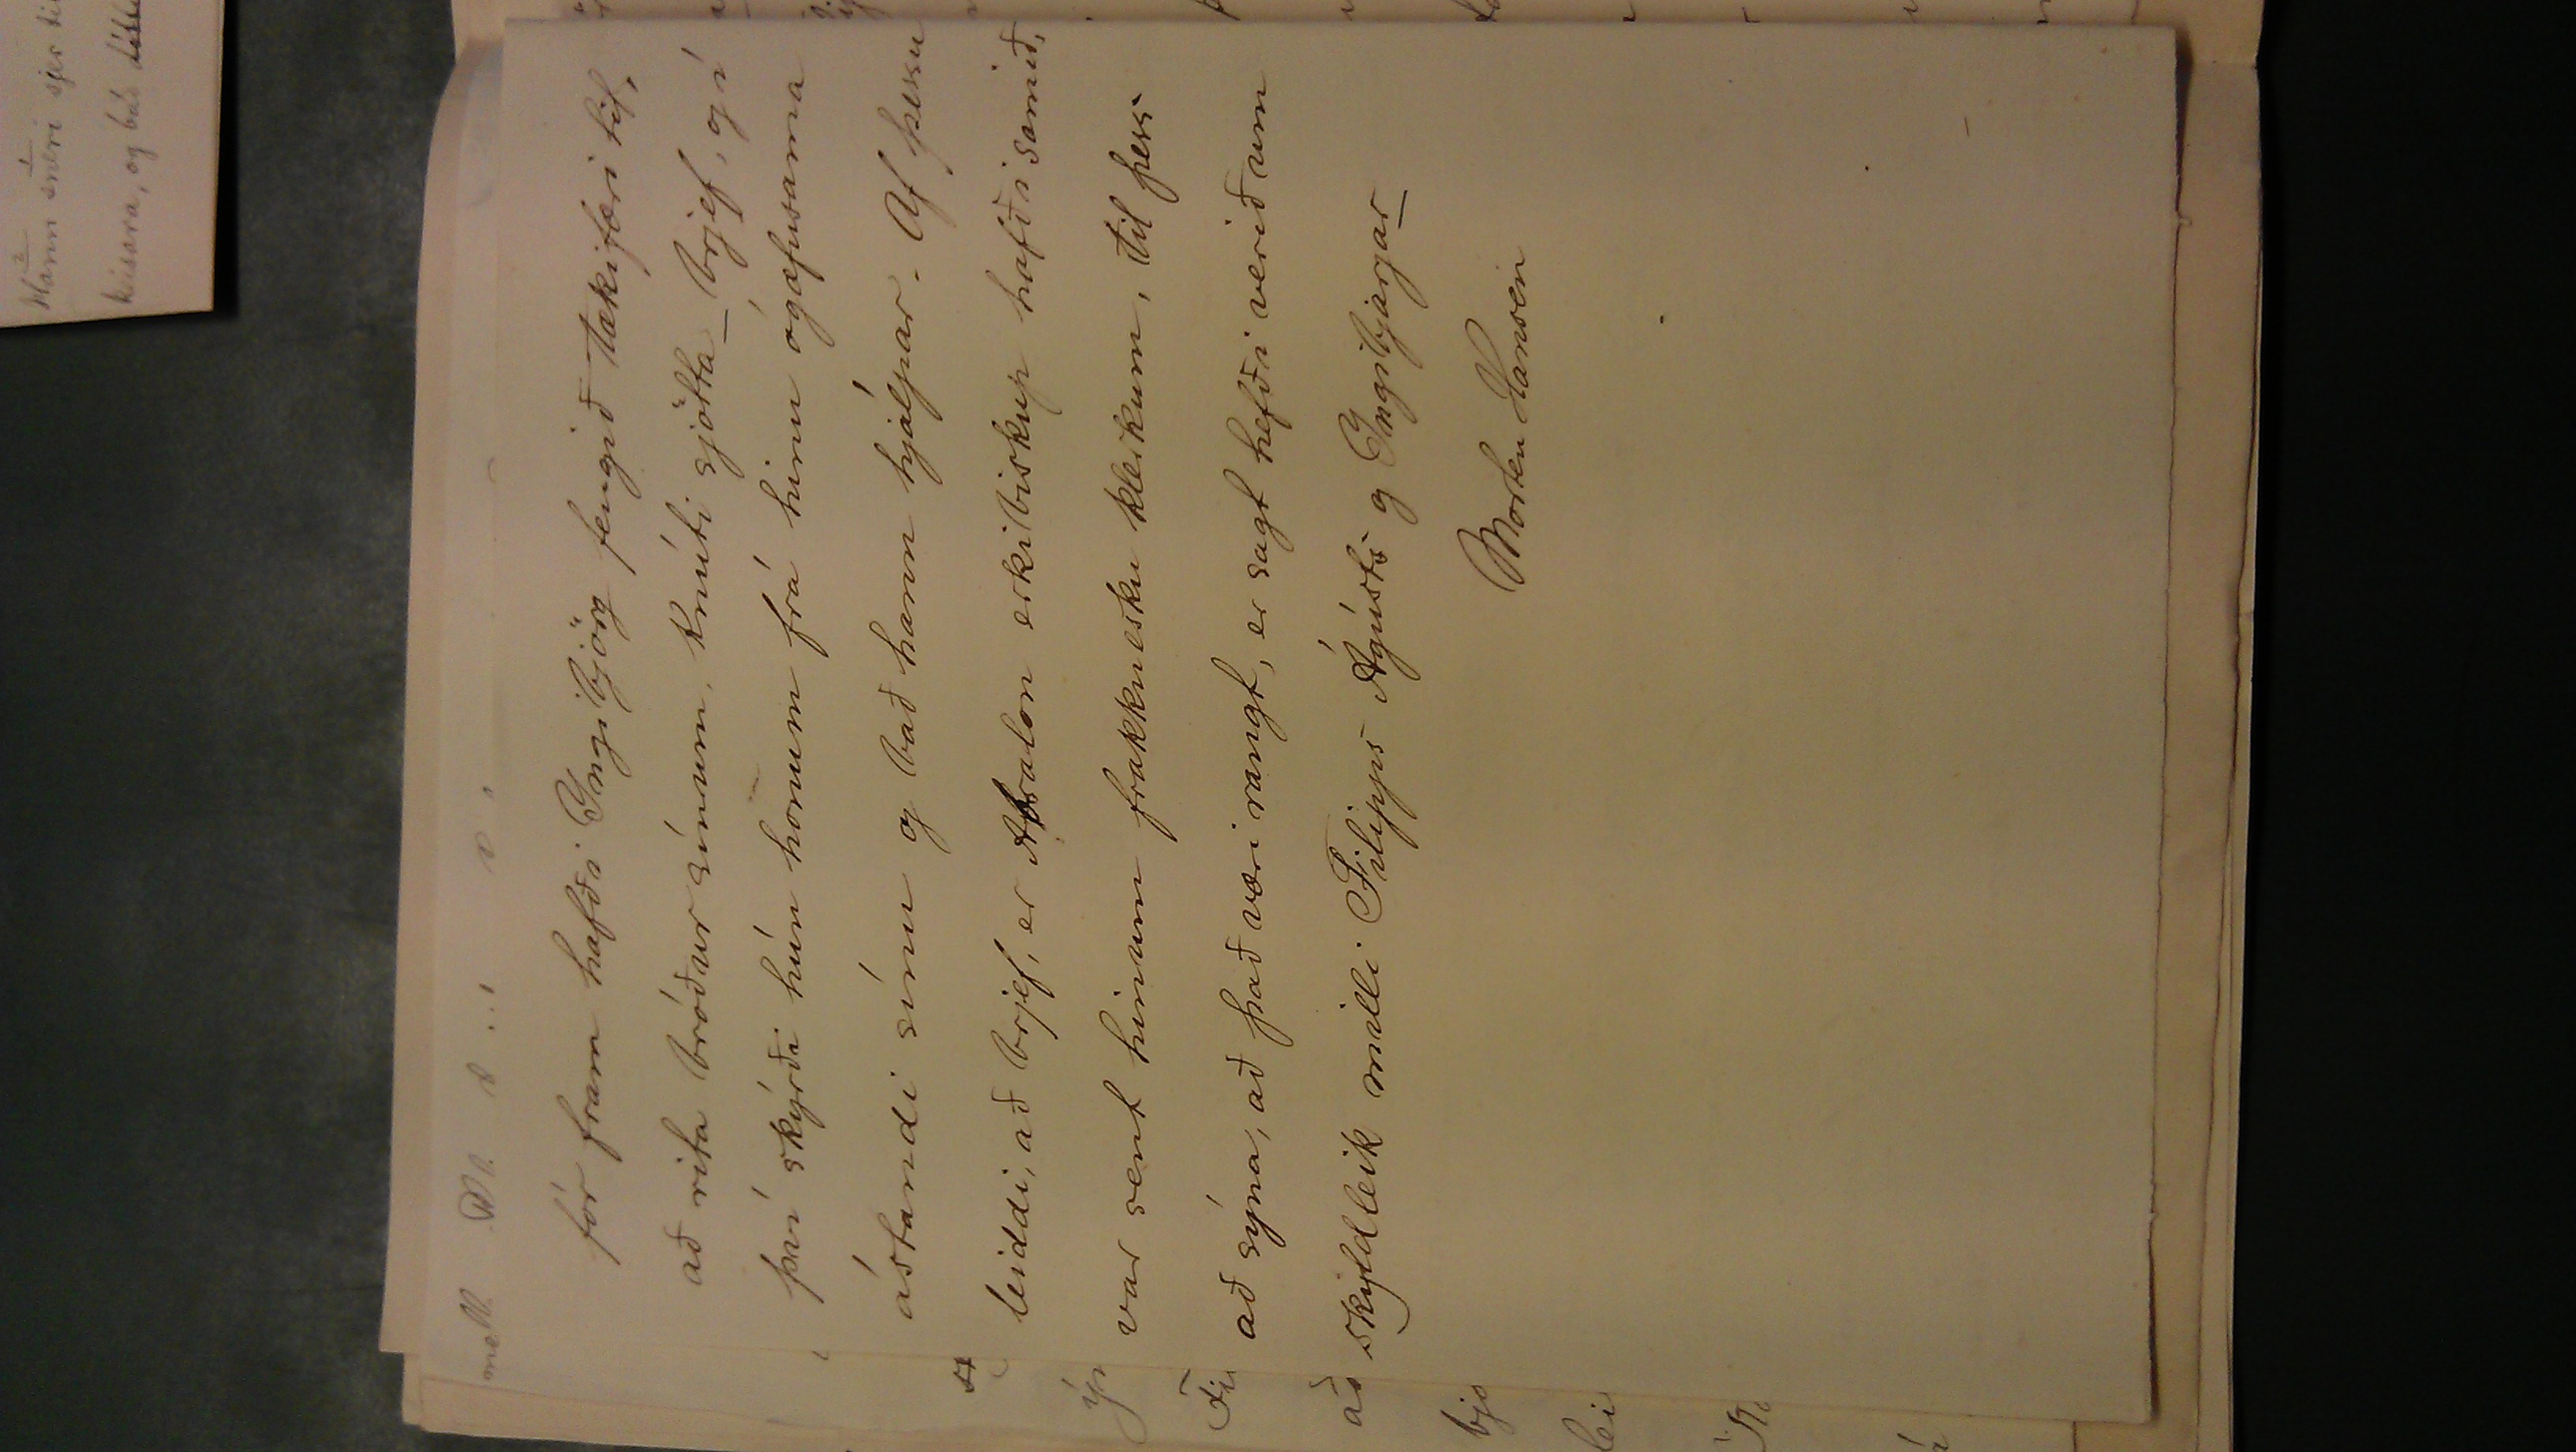 Hann sneri sjer til
keisara, og bað
fór fram hafði Ingibjörg fengið tækifæri til,
að rita bróður sínum, Knúti sjötta, brjef, og í
því skýrði hún honum frá hinu ógæfusama
ástandi sínu og bað hann hjálpar. Af þessu
leiddi, að brjef, er Absalon erkibiskup hafði samið,
var sent hinum frakknesku klerkum, til þess
að sýna, að það væri rangt, er sagt hefði verið um
skyldleik milli Filipps Ágústs og Ingibjargar
Morten Hansen